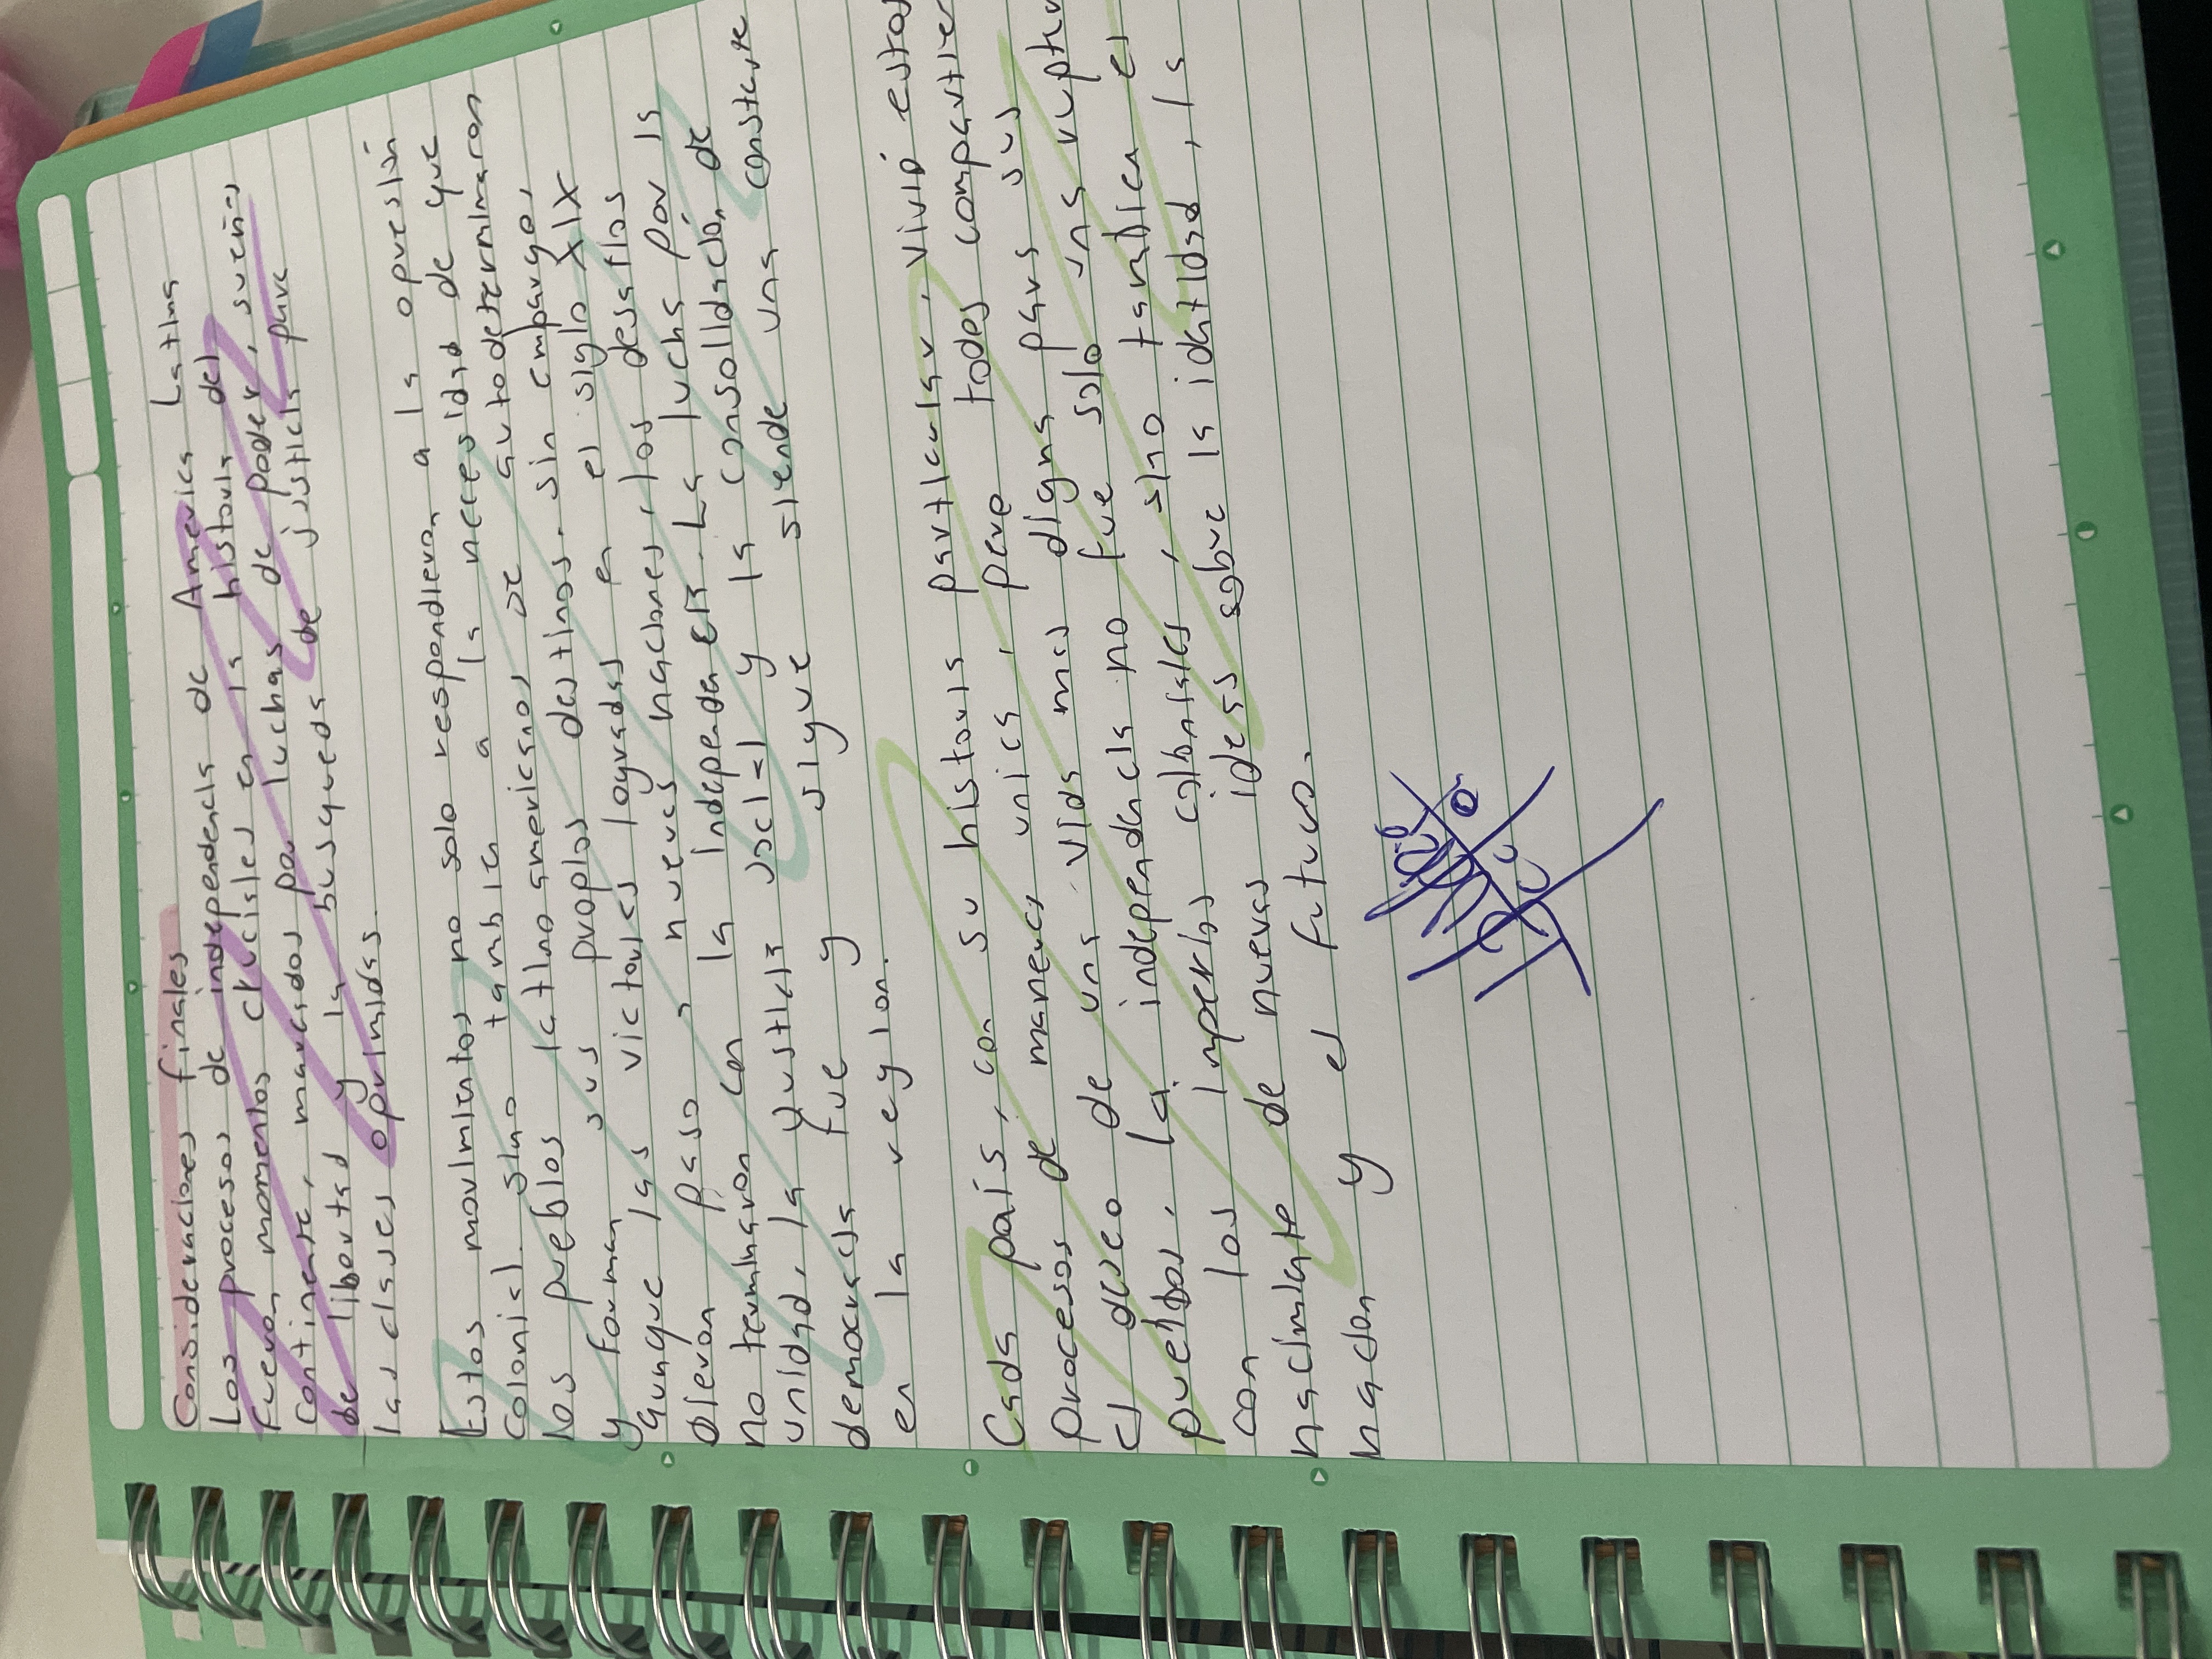 Consideraciones finales
Los procesos de independencia de America Latina
fueron momentos cruciales en la historia del
continente, marcados por luchas de poder, sueños
de libertad y la busqueda de justicia para
las clases oprimidas.
Estos movimientos no solo respondieron a la opresión
colonial sino tambien a la necesidad de que
los pueblos latinoamericanos se autodeterminaron
y forman sus propios destinos. sin embargo,
aunque las victorias logradas en el siglo XIX
dieron paso a nuevas naciones, los desafíos
no terminaron con la independencia. La lucha por la
unidad, la justicia social y la consolidación de
democracia fue y sigue siendo una constante
en la region.
Cada país, con su historia particular, vivió estos
procesos de manera unica, pero todos compartier
el deseo de una vida mas digna para sus
pueblos. La independencia no fue solo una ruptu
con los imperios coloniales, sino tambien el
nacimiento de nuevas ideas sobre la identidad, la
nacion y el futuro.